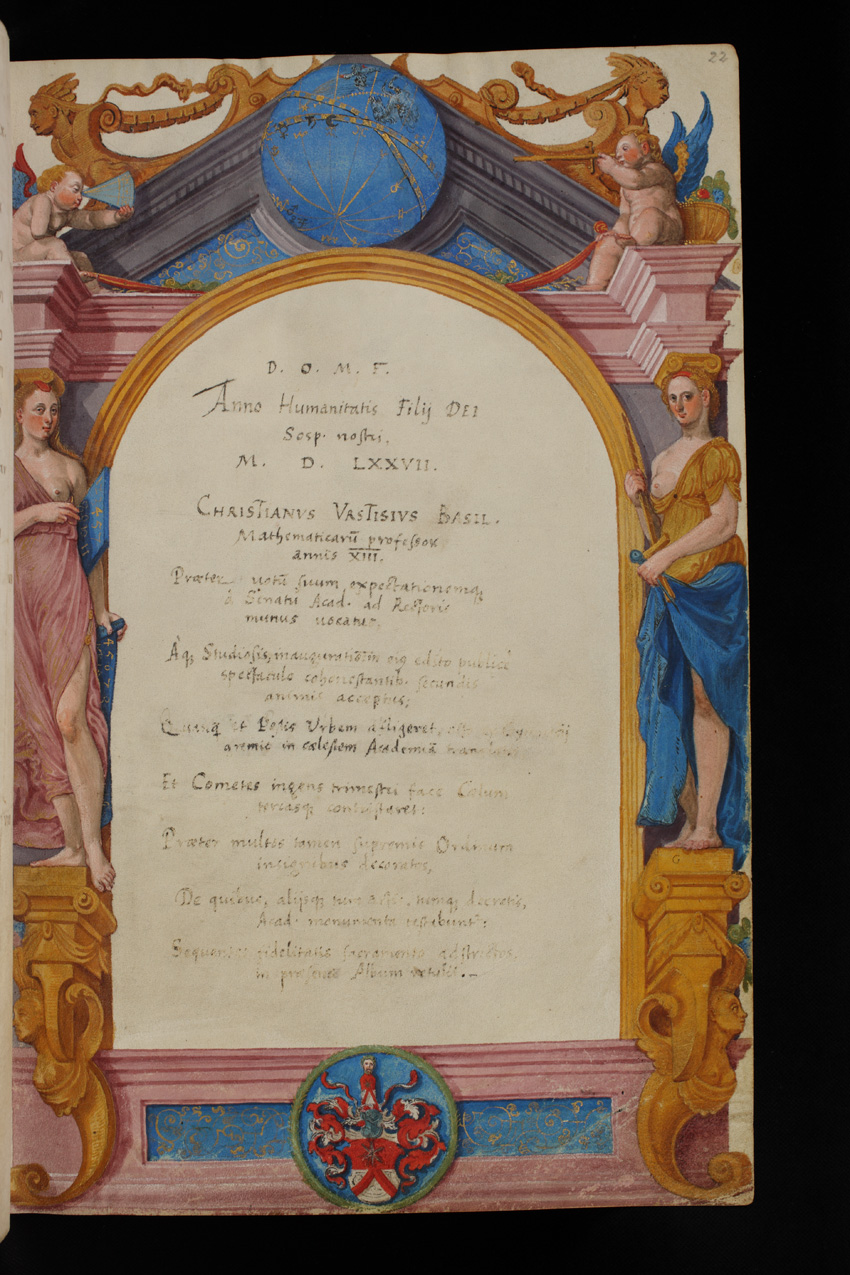 22
D. O. M. F.
Anno Humanitatis Filij DEI
Sosp. nostri,
M. D. LXXVII.
CHRISTIANVS VRSTISIVS BASIL.
Mathematicarū professor
annis XIII.
Præter uotū suum expectationemq́
è Senatu Acad. ad Rectoris
munus uocatus,
Àq́ Studiosis, inaugurationem
spectaculo cohonestantib. secundis
animis acceptus;
Quanq́ et Pestis Vrbem afligeret,
gremio in cœlestem Academiā
Et Cometes ingens trimestri face Cœlum
terrasq́ contristaret:
Præter multos tamen supremis Ordinum
insignibus decoratos,
De quibus, alijsq́ tum actis, tumq́ decretis,
Acad. monumenta testabunt;
Sequentes fidelitatis sacramento adstrictos
in præsens Album retulit.
G